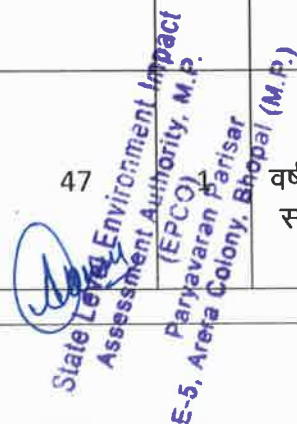 47
1
वर्ष
State Level Environment Impact
Assessment Authority, M.P.
(EPCO)
Paryavaran Parisar
E-5, Arera Colony, Bhopal (M.P.)